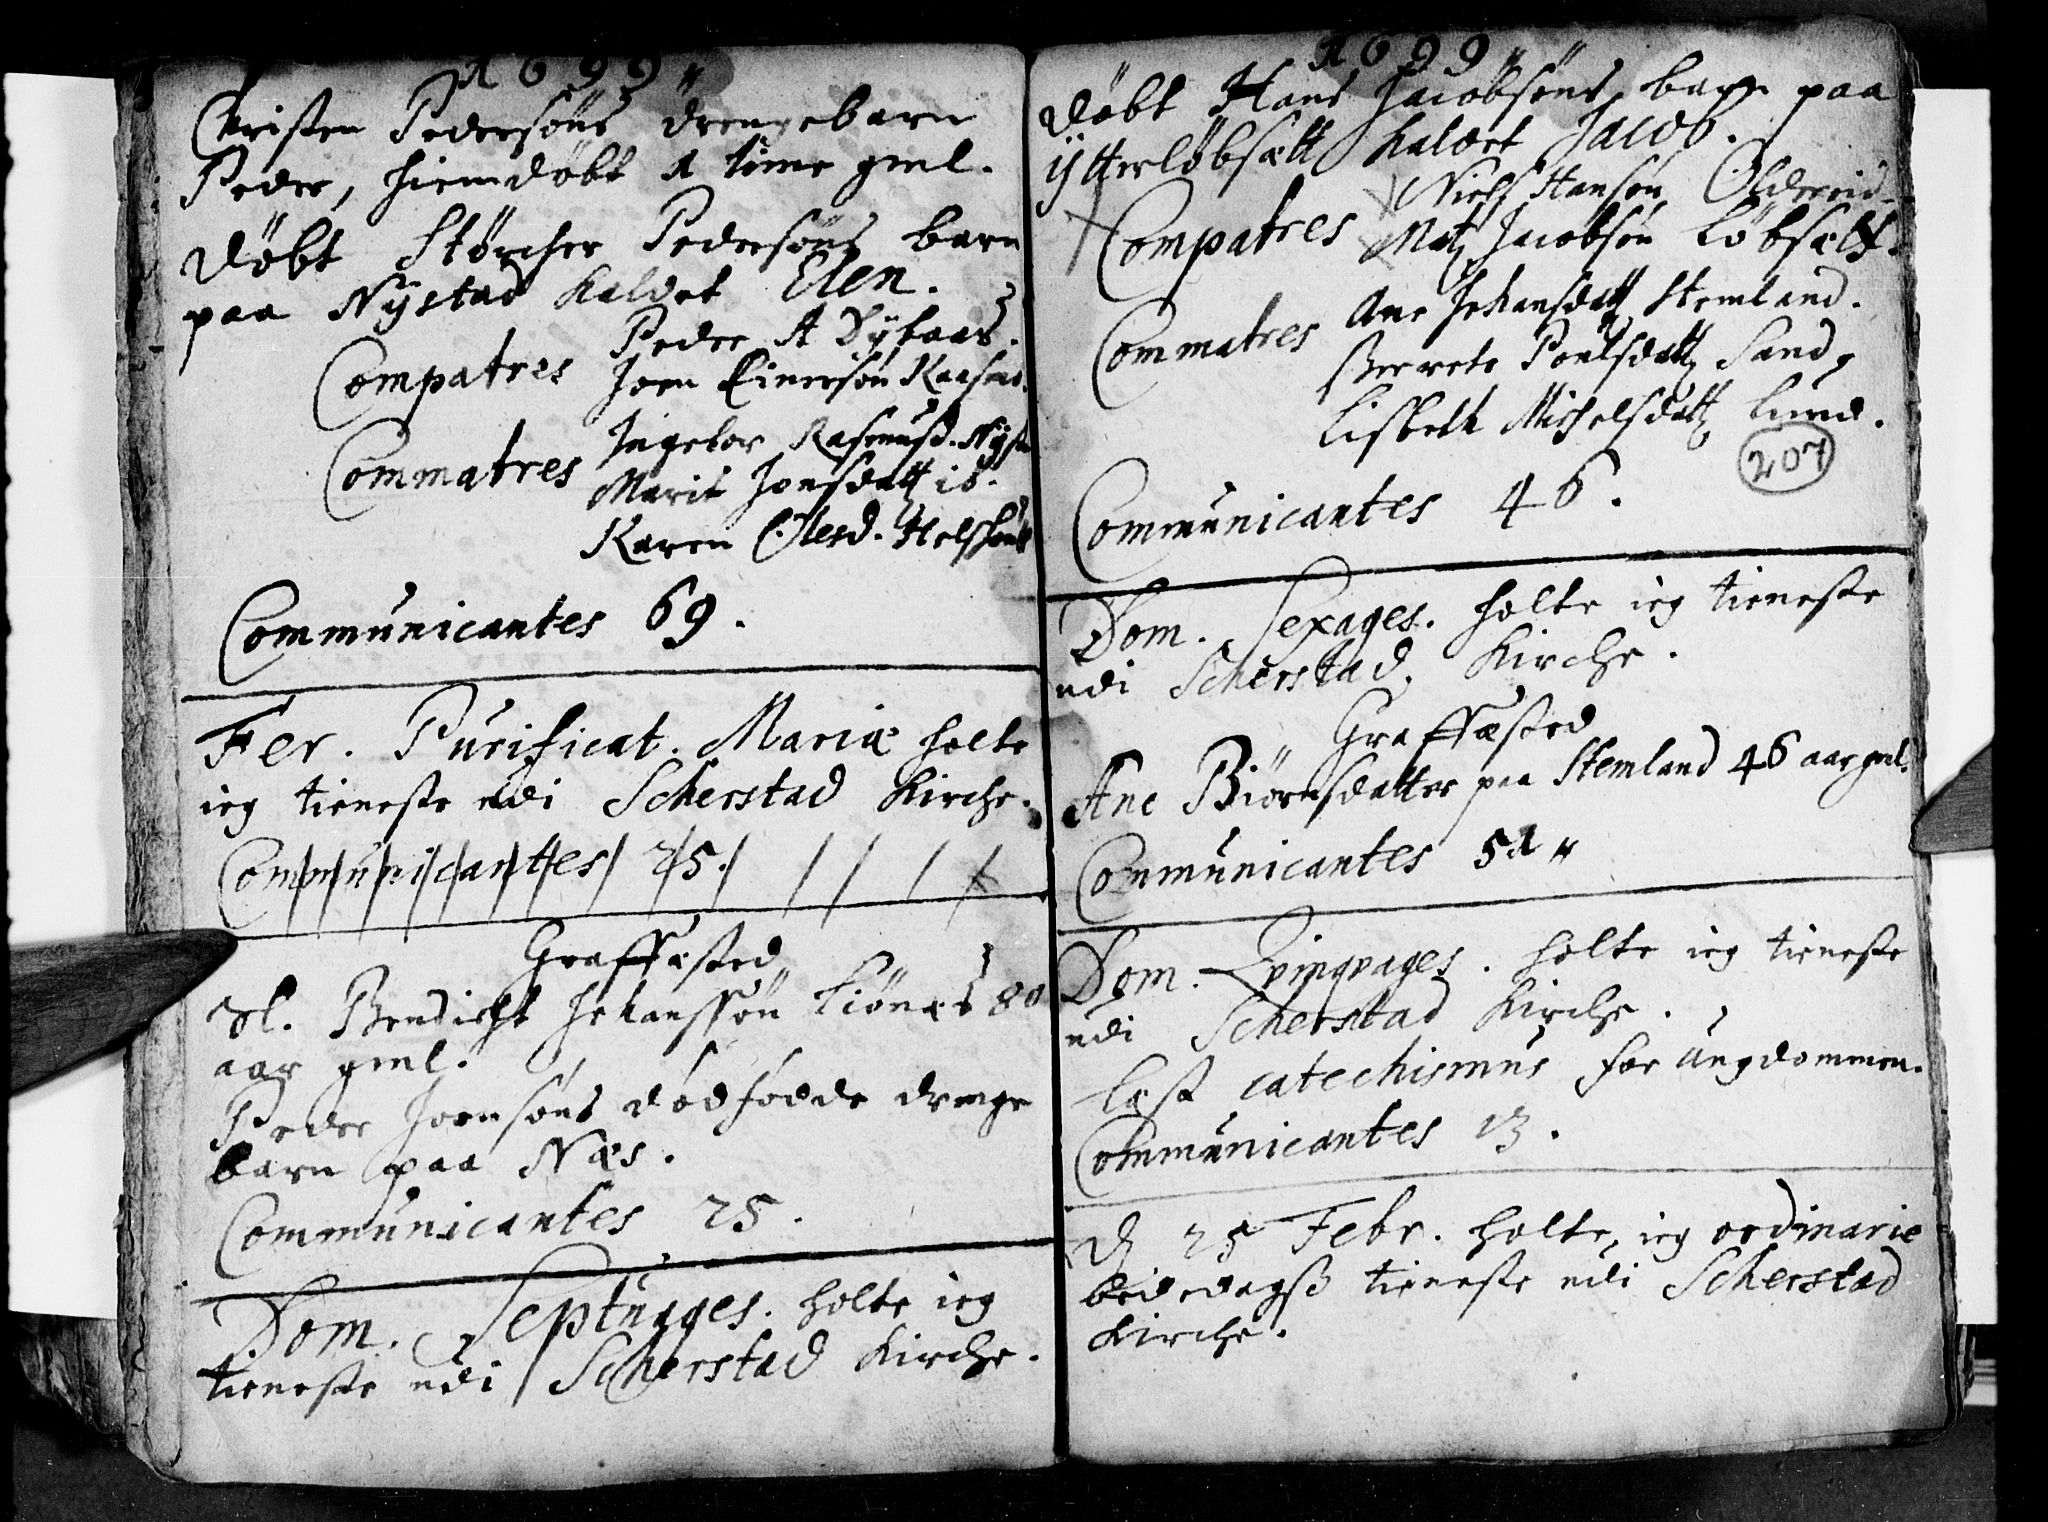 1699
Christen Pedersøns drengebarn
Peder, hiemdøbt 1 time gml.
Døbt Størcher Pedersøns barn
paa Nÿstad kaldet Elen.
Compatres Peder A Dÿbaas.
Joen Einersøn
Commatres Ingebor Rasmusd. Nÿst
Marit Jonsdatt ib.
Karen Olesd.
Communicantes 69.
Fer. Purificat. Mariæ holte
ieg tieneste udi Scherstad Kirche.
Communicantes 25.
Graffæsted
Sl. Bendicht Johanssøn Liønæs 80
aar gml.
Peder Joensøns dødfødde drenge
barn paa Næs.
Communicantes 25.
Dom. Septuages. holte ieg
tieneste udi Scherstad Kirche.
1699
Døbt Hans Jacobsøns barn paa
ÿtterløbsætt kaldet Jacob.
Niels Hansøn Oldereid.
Compatres Matz Jacobsøn Løbsætt.
Commatres Ane Johansdatt Stemland.
Berrete Poulsdatt Sand,
Lisbeth Michelsdatt Lund.
207
Communicantes 46.
Dom. Sexages. holte ieg tieneste
udi Scherstad Kirche.
Graffæsted
Ane Biørnsdatter paa Stemland 46 aar gml.
Communicantes 51
Dom. Qvinqvages. holte ieg tieneste
udi Scherstad Kirche.
læst catechismus for Ungdommen.
Communicantes 13.
D 25 Febr. holte ieg ordinarie
bededagss tieneste udi Scherstad
Kirche.